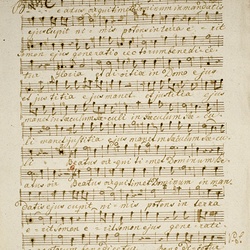 eatus vir qui timet Dominum in mandatis
ejus Cupit nimis potens in terra erit
men ejus generatio rectorum benedice
tur gloria et divitiae in Domo ejus
et justitia ejus manet et justitia ejus
manet in saeculum saeculi in saeculum saecu
li manet justitia ejus manet in saeculum saecu
li Beatus vir qui timet Dominum Be
atus vir Beatus vir qui timet Dominum in man
datis ejus cupit nimis potens in terra
erit semen erit semen ejus genera